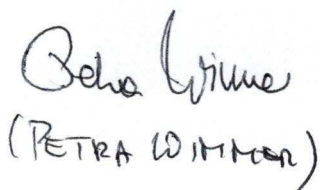 Petra Wimmer
(PETRA WIMMER)